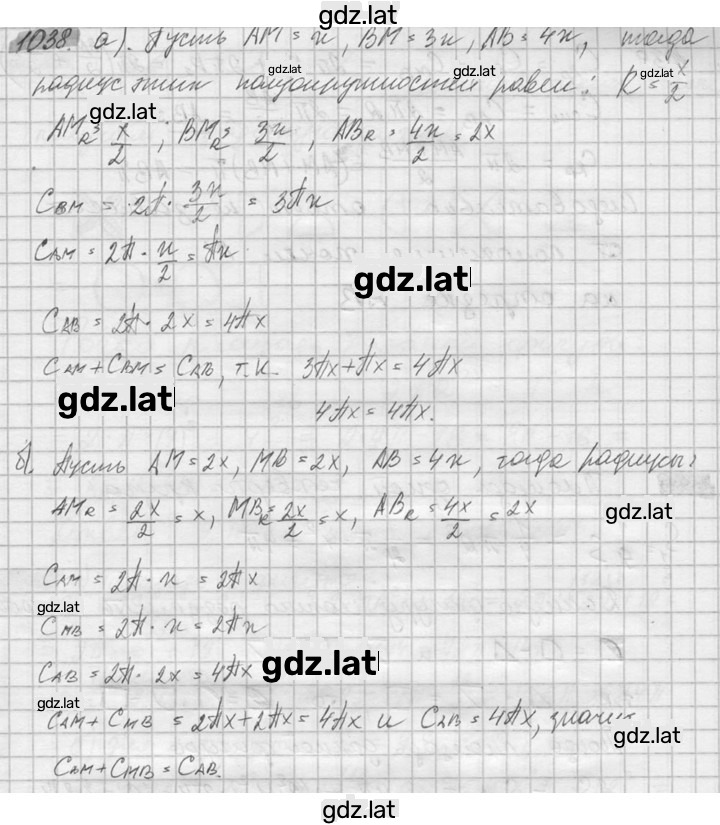 gdz.lat
1038. а). Пусть AM = x, BM = 3x, AB = 4x, тогда
gdz.lat gdz.lat gdz.lat
радиус этих полуокружностей равен: R = x/2
gdz.lat
AM_R = x/2 ; BM_R = 3x/2 , AB_R = 4x/2 = 2x
C_BM = 2π · 3x/2 = 3πx
C_AM = 2π · x/2 = πx
gdz.lat
C_AB = 2π · 2x = 4πx
C_AM + C_BM = C_AB, т.к. 3πx + πx = 4πx
gdz.lat
4πx = 4πx.
б). Пусть AM = 2x, MB = 2x, AB = 4x, тогда радиусы:
AM_R = 2x/2 = x, MB_R = 2x/2 = x, AB_R = 4x/2 = 2x
gdz.lat
C_AM = 2π · x = 2πx
gdz.lat
C_MB = 2π · x = 2πx
C_AB = 2π · 2x = 4πx
gdz.lat
gdz.lat
C_AM + C_MB = 2πx + 2πx = 4πx и C_AB = 4πx, значит
gdz.lat
C_AM + C_MB = C_AB.
gdz.lat